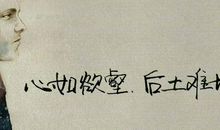 心如欲壑，后土难